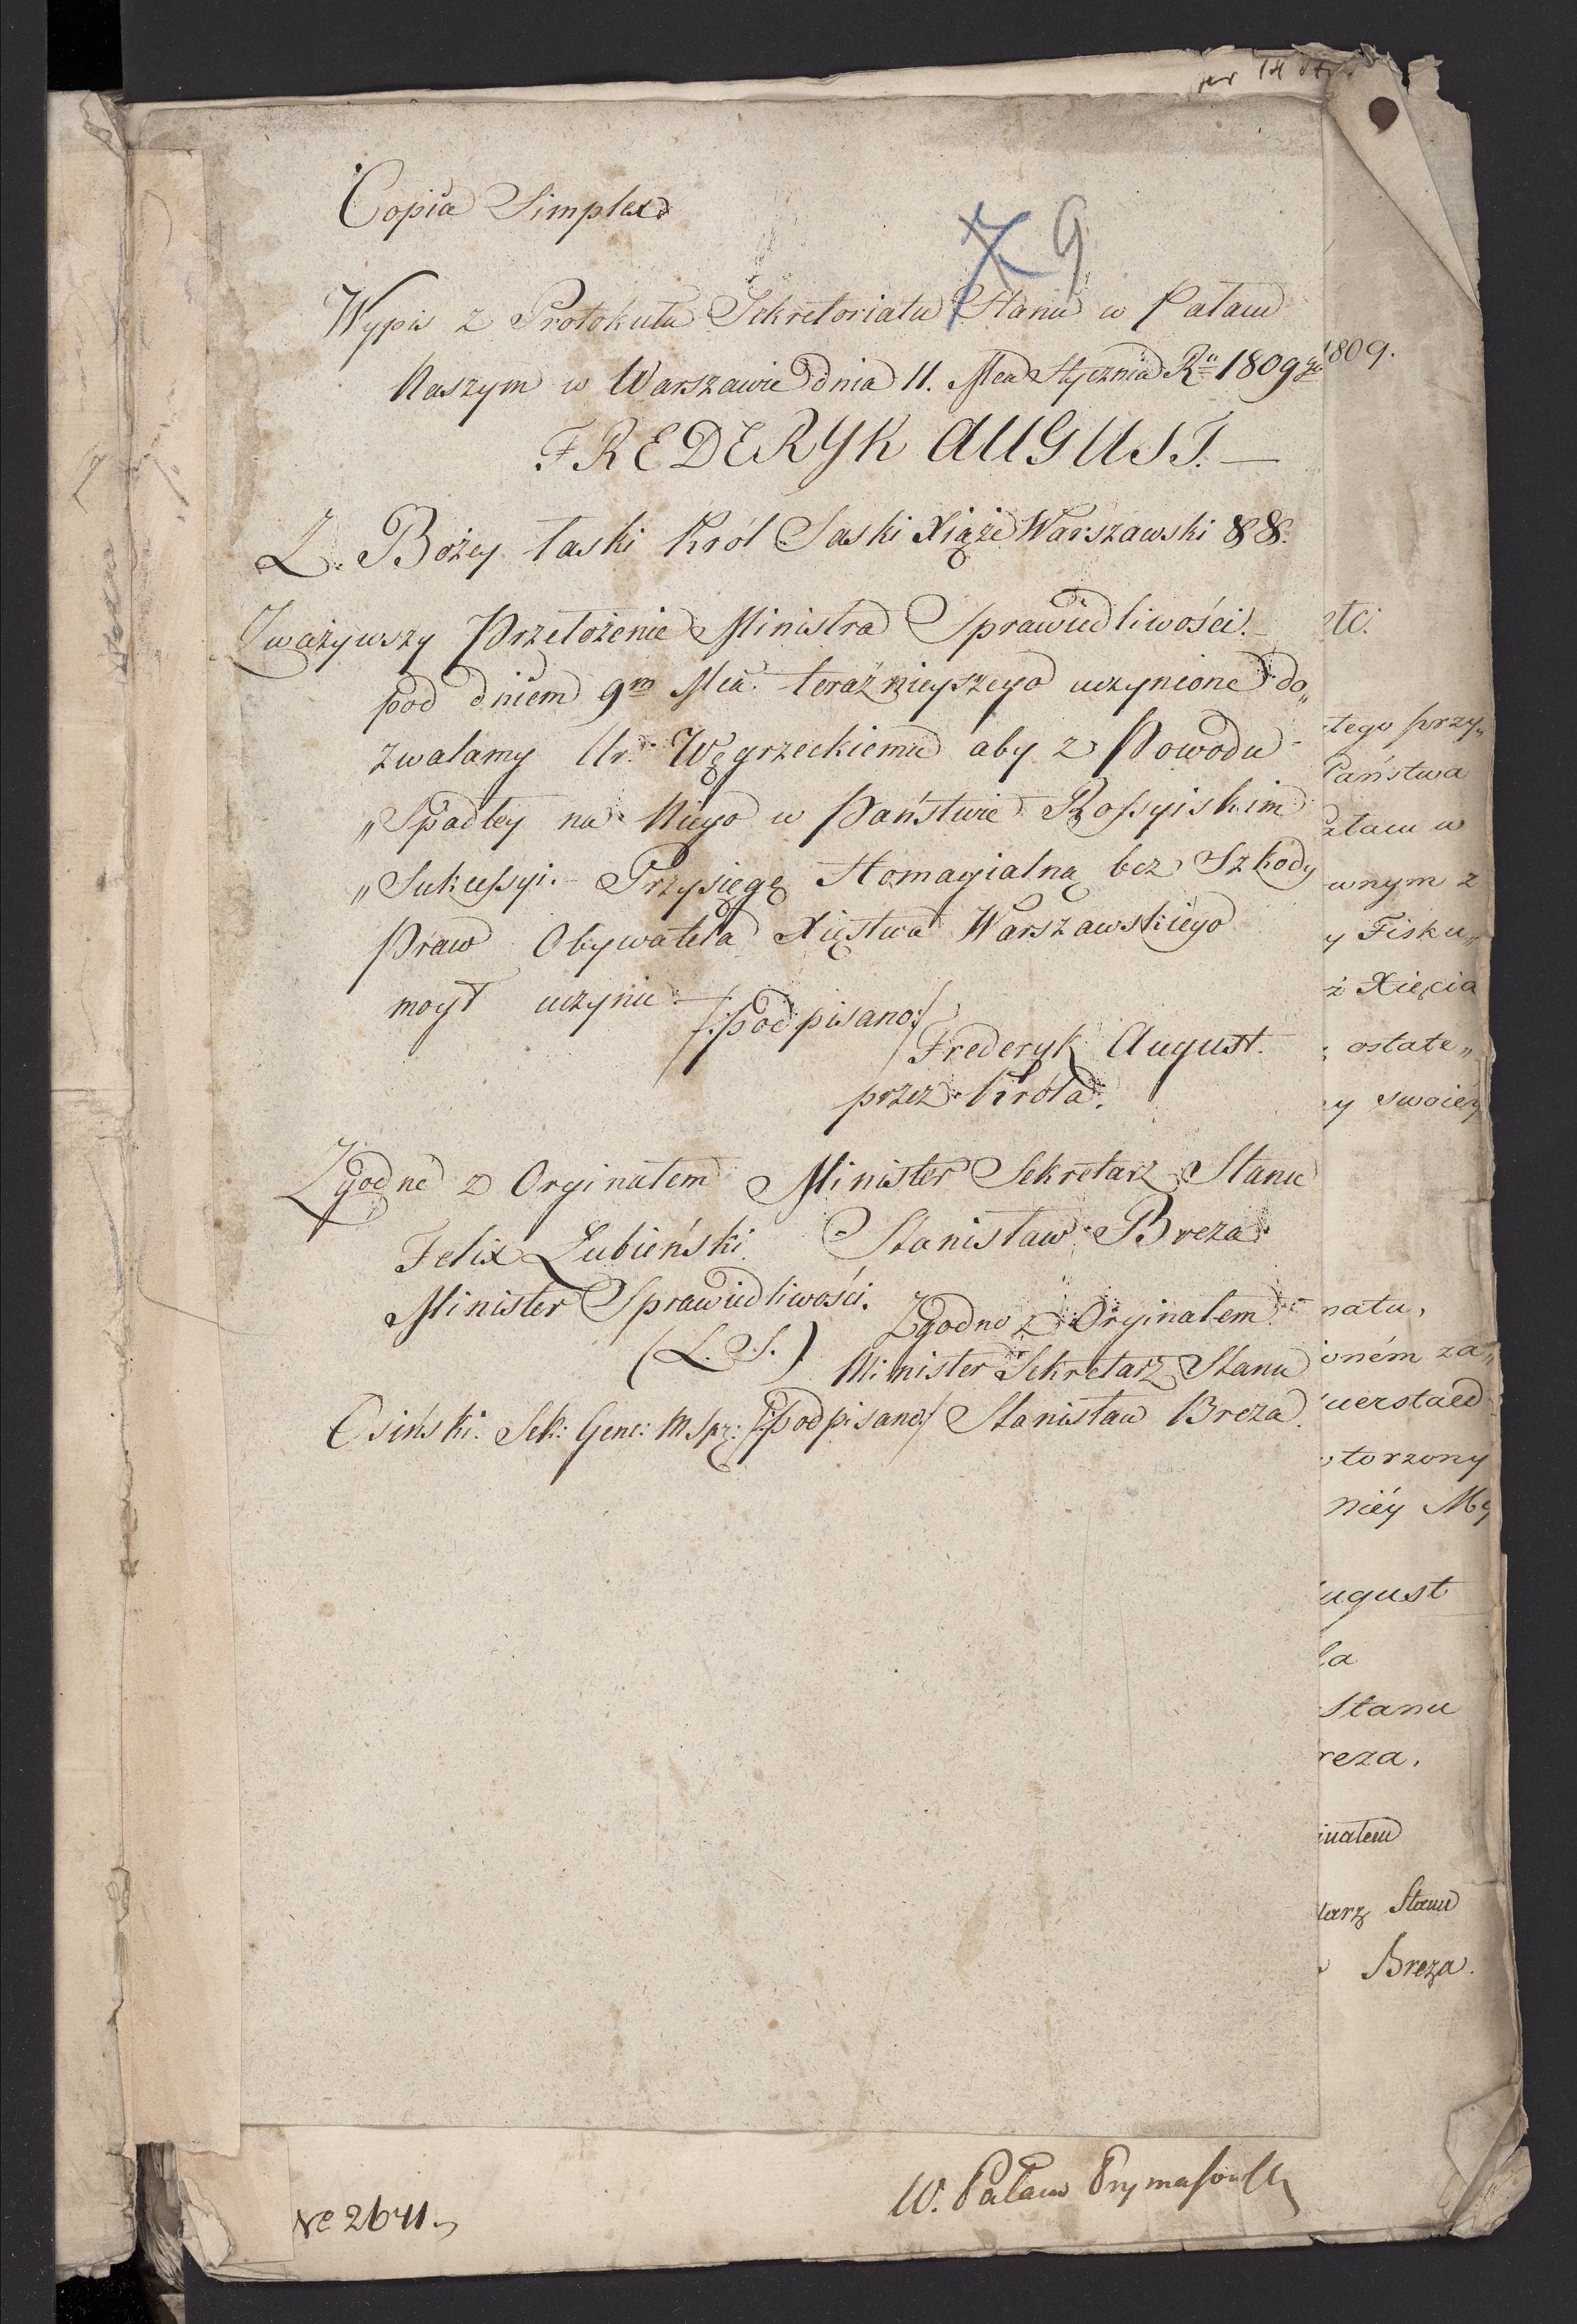 Copia Simplex
9
Wypis z Protokułu Sekretoriatu Stanu w Pałacu
Naszym w Warszawie dnia 11. Mca Stycznia Ru 1809go
FREDERYK AUGUST. —
Z. Bożey łaski Król Saski Xiąże Warszawski &&.
Zważywszy Przełożenie Ministra Sprawiedliwości. –
pod dniem 9m Mca. teraźnieyszego uczynione do„
zwalamy Ur: Węgrzeckiemu aby z Powodu
„Spadłey na Niego w Państwie Rossyiskim
„Sukcessyi. – Przysięgę Homagialną bez Szkody
Praw Obywatela Xięstwa Warszawskiego
mógł uczynić. –
/:podpisano:/
Frederyk August.
przez Króla.
Zgodne z Orginałem Minister Sekretarz Stanu
Felix Łubieński Stanisław Breza
Minister Sprawiedliwości.
Zgodno z Orginałem
(L. S.) Minister Sekretarz Stanu
Osiński. Sek: Gene: M Spr: /:podpisano:/ Stanisław Breza.
1809.
etc.
tego przy„
Państwa
łacu w
wnym z
y Fisku„
ż Xięcia
ostate„
y swoiéy
nału,
oném za„
uerstaed
torzony
niéy My
ugust
la
Stanu
reza.
inałem
tarz Stanu
Breza.
No 2641.
W. Pałacu Prymasowsk